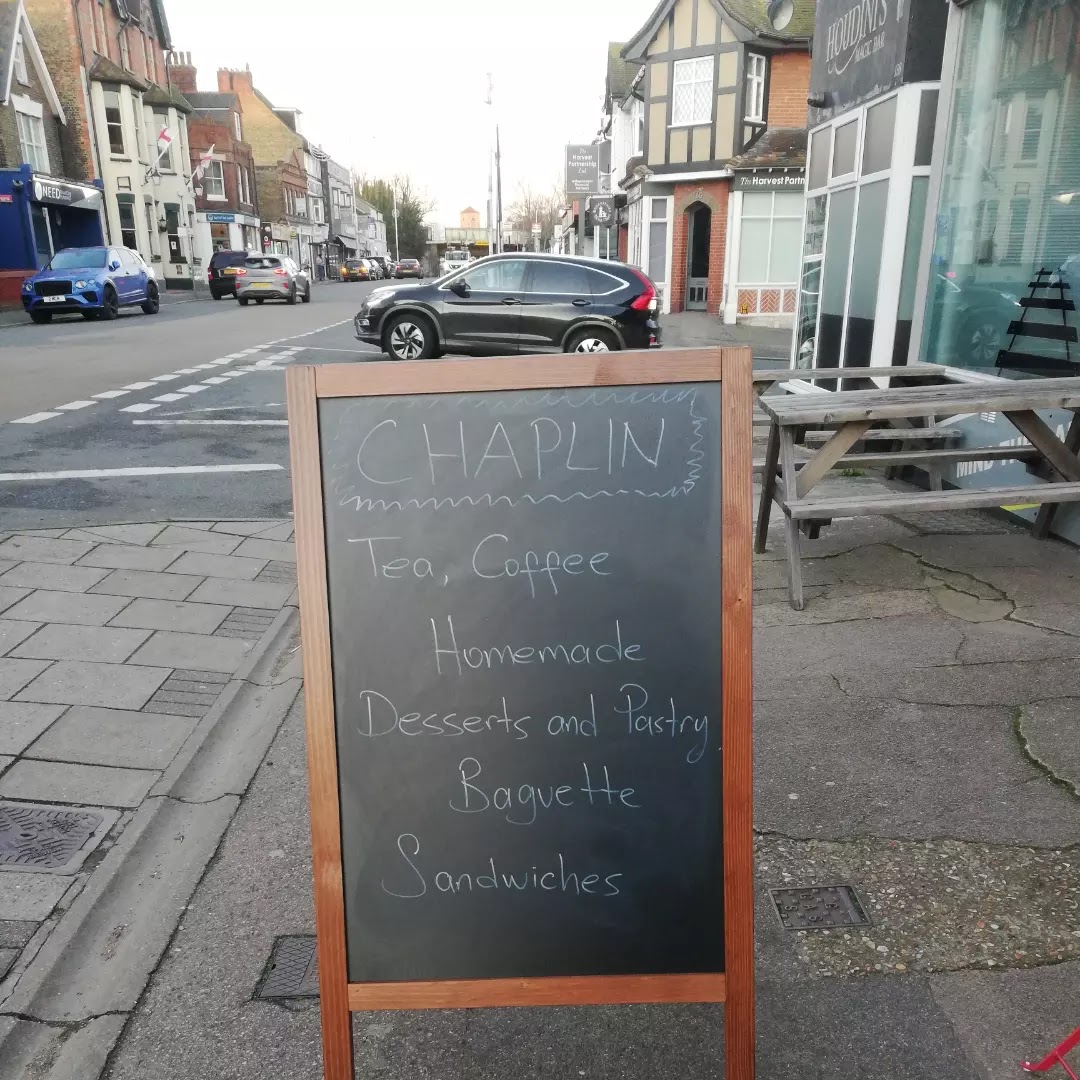 CHAPLIN
Tea, Coffee
Homemade
Desserts and Pastry
Baguette
Sandwiches
HOUDINI'S
MAGIC BAR
The
Harvest
Partnership
The Harvest Partn
NEED
MIND T